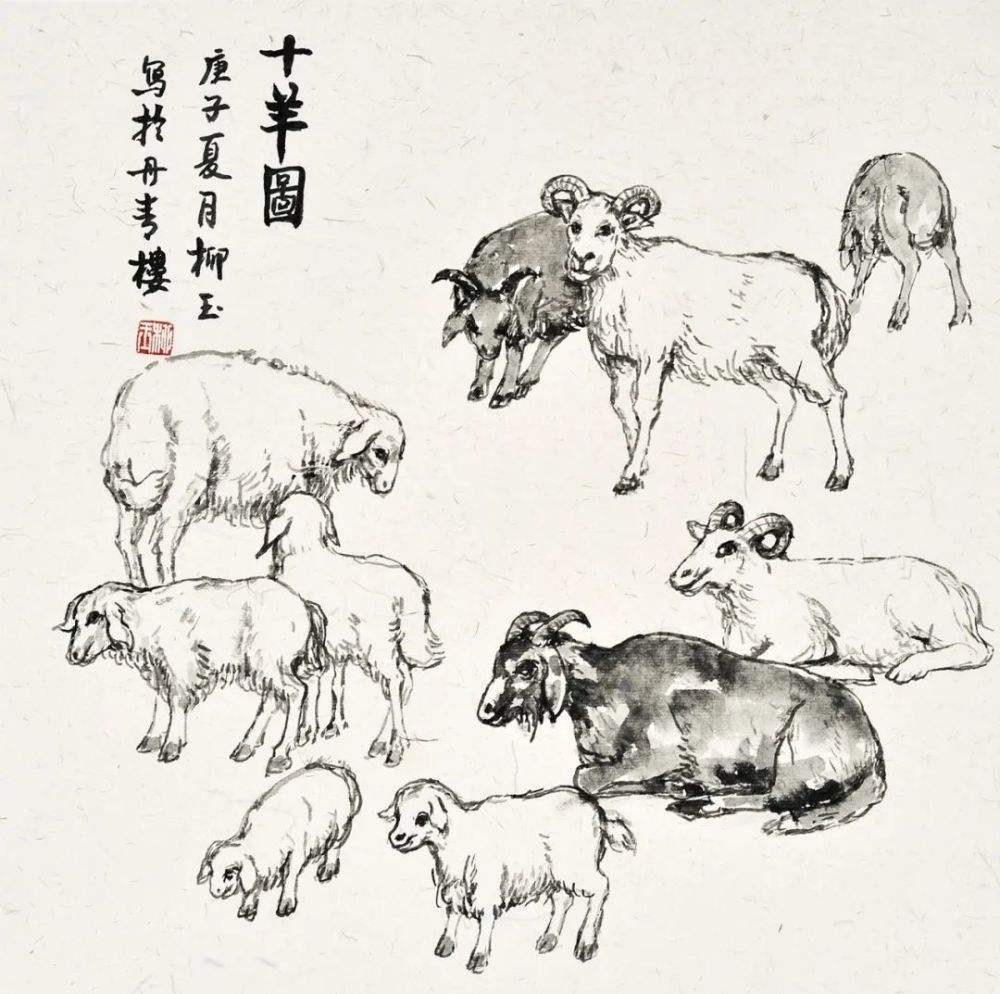 十羊圖
庚子夏月柳玉
寫於丹青樓
柳玉